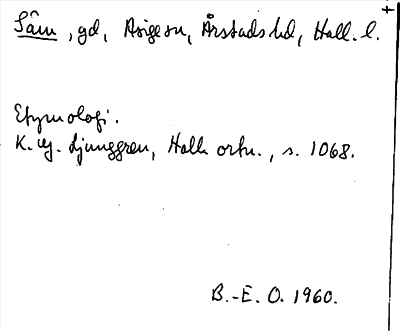 Sâm, gd, Asige sn, Årstads hd, Hall. l.
Etymologi.
K. g. Ljunggren, Hall. ortn., s. 1068.
B.-E. O. 1960.